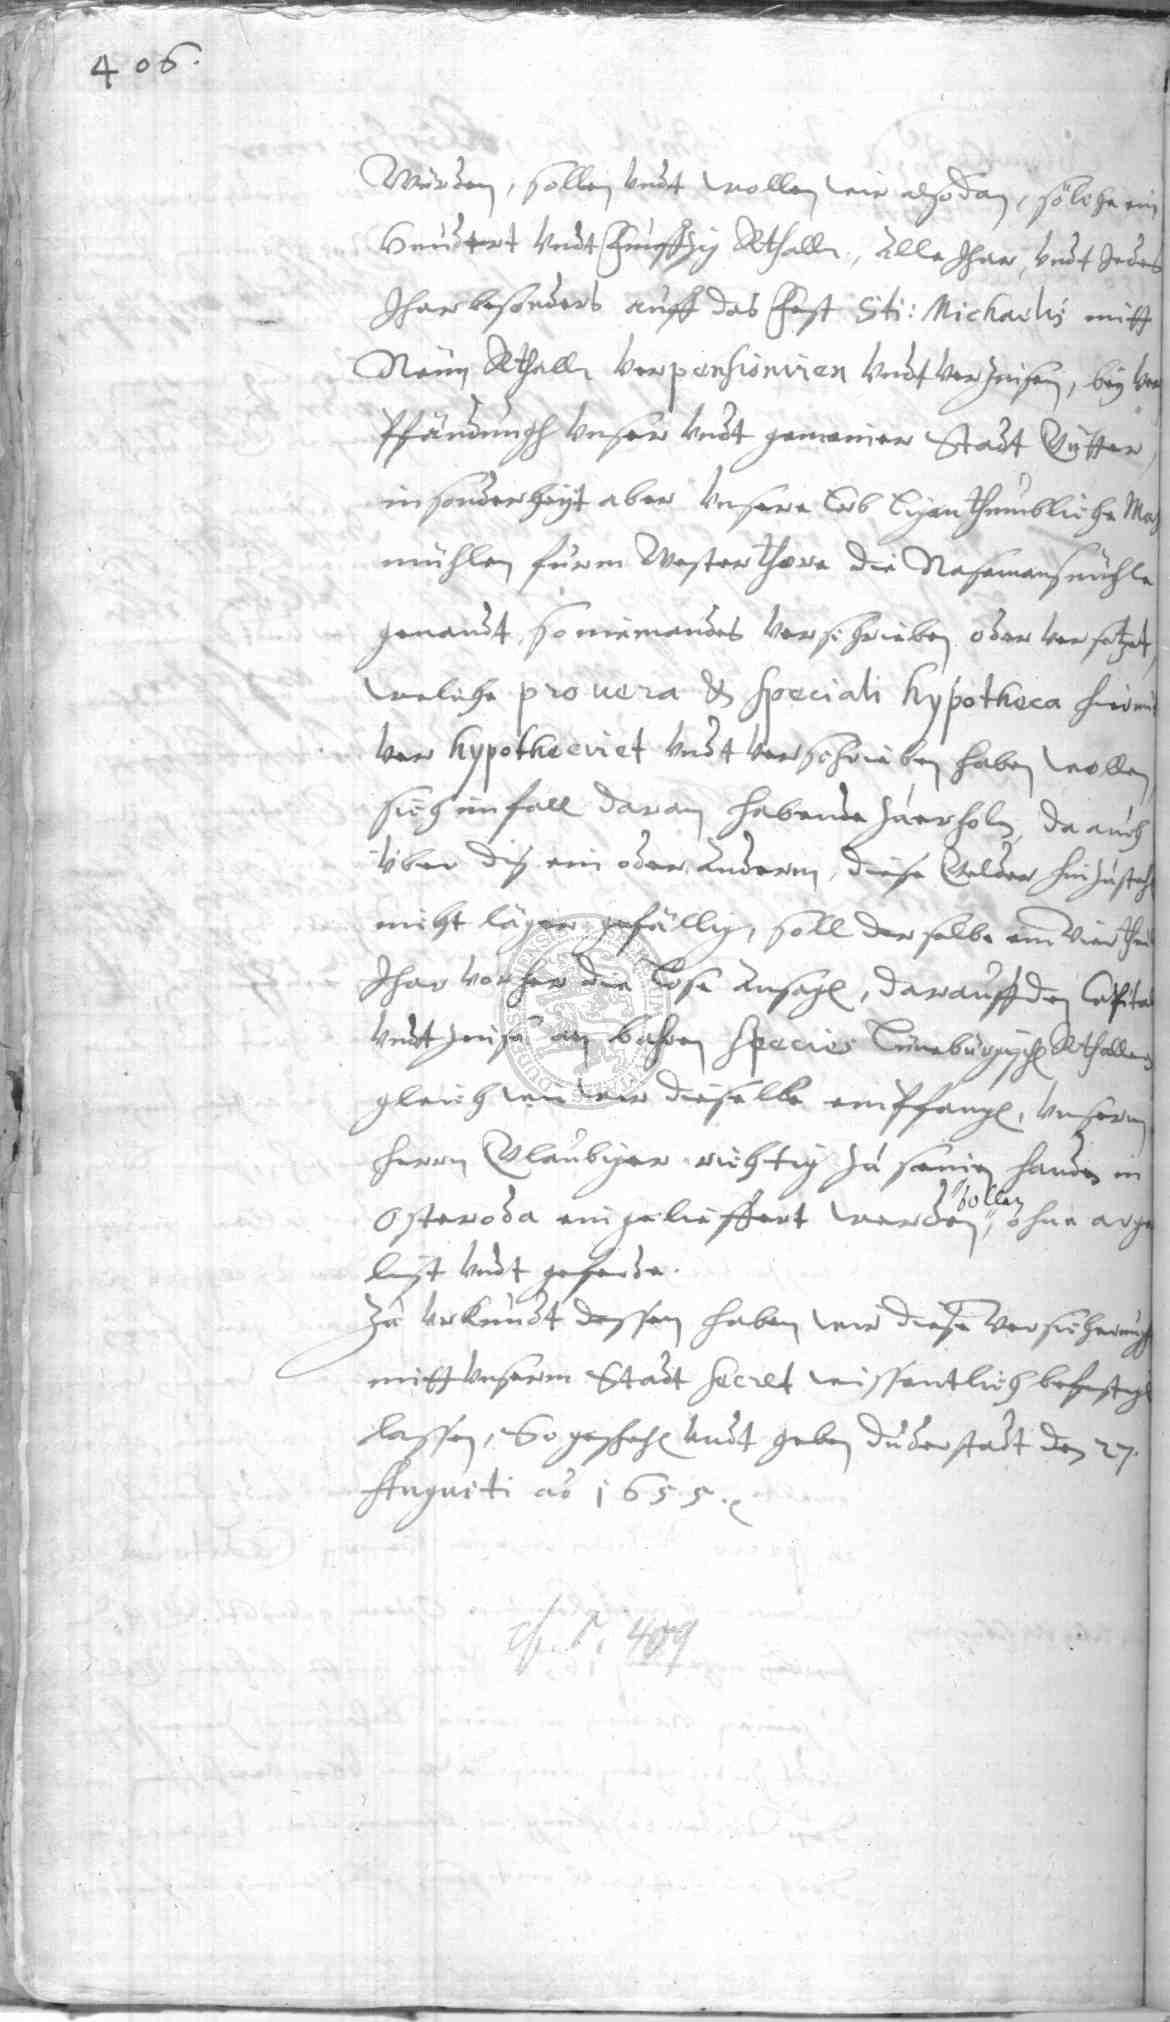 406.
Würden, sollen vndt wollen wir alßdan, solche ein
Hundert vndt Funffzig Rthall., Alle Jhar, vndt Jedes
Jhar besonders auff das Fest Sti: Michaelis mitt
Neun Rthalln verpensioniren vndt verzinsen, bey ver
Pfändungh vnser vndt gemeiner Stadt Gütter,
insonderheyt aber vnsere Erb Eigenthumbliche Mahl
mühlen fürm Westerthore die Nasemansmühle
genandt, so niemandes verschrieben oder versetzet,
welche pro uera & speciali hypotheca hiermit
ver hypotheciret vndt verschrieben haben wollen
sich im fall daran habende zuerholn, da auch
über diß ein oder Anderm, diese Gelder hinzustehn
nicht länger gefällig, soll der selbe ein Viertheil
Jhar vorher die Lose Ansagen, darauff den Capital
vndt Zinse an bahren Species Lüneburgische Rthallern
gleich wie wir dieselbe empfangen, vnserm
herrn Glaubiger richtig zu seinen handen in
Osteroda eingelieffert werden sollen, ohne arge
list vndt geferde.
Zu Urkundt dessen haben wir diese Versicherungh
mitt vnserm Stadt Secret wissentlich befestigen
lassen, So geschehen vndt geben Duderstadt den 27.
Augusti ao 1655.
cf. S. 409